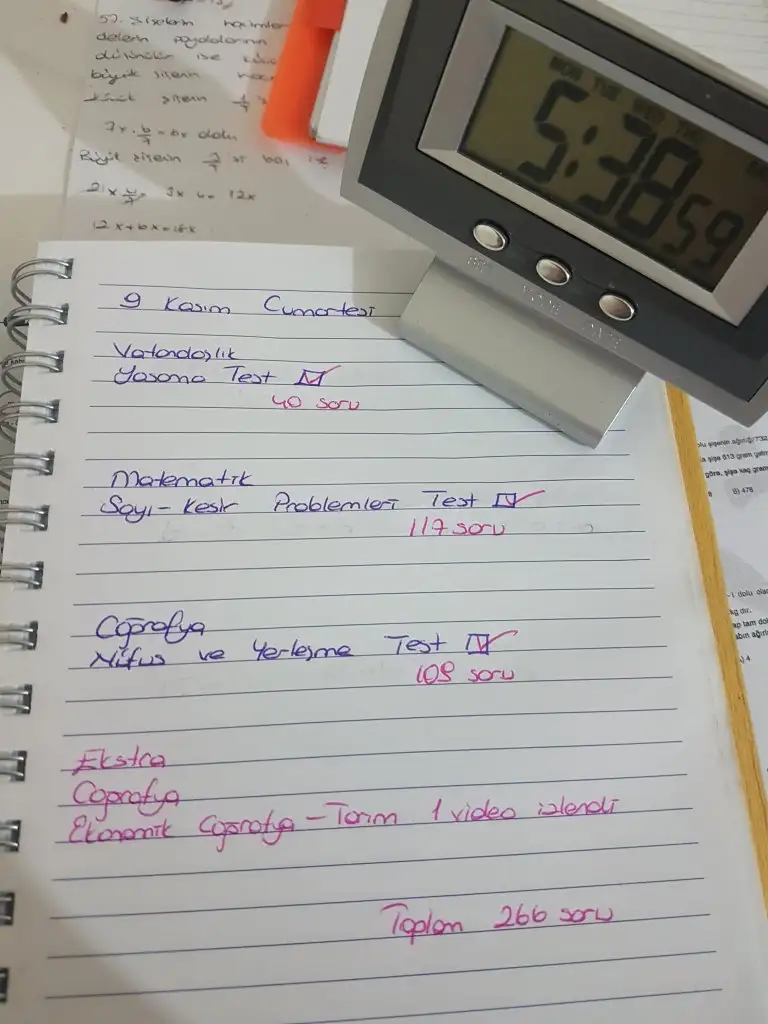 57. Şişelerin hacimler
büyük şişenin
7x.b/7=6x dolu
12x+6x=18x
MON TUE WED THU
5:38 59
9 Kasım Cumartesi
Vatandaşlık
Yasama Test ☑
40 soru
Matematik
Sayı-Kesir Problemleri Test ☑
117 soru
Coğrafya
Nüfus ve Yerleşme Test ☑
109 soru
Ekstra
Coğrafya
Ekonomik Coğrafya - Tarım 1 video izlendi
Toplam 266 soru
olu şişenin ağırlığı 732
a şişe 613 gram gelm
göre, şişe kaç gram
B) 476
dolu olar
kg dır.
ap tam dol
abın ağırlı
) 4